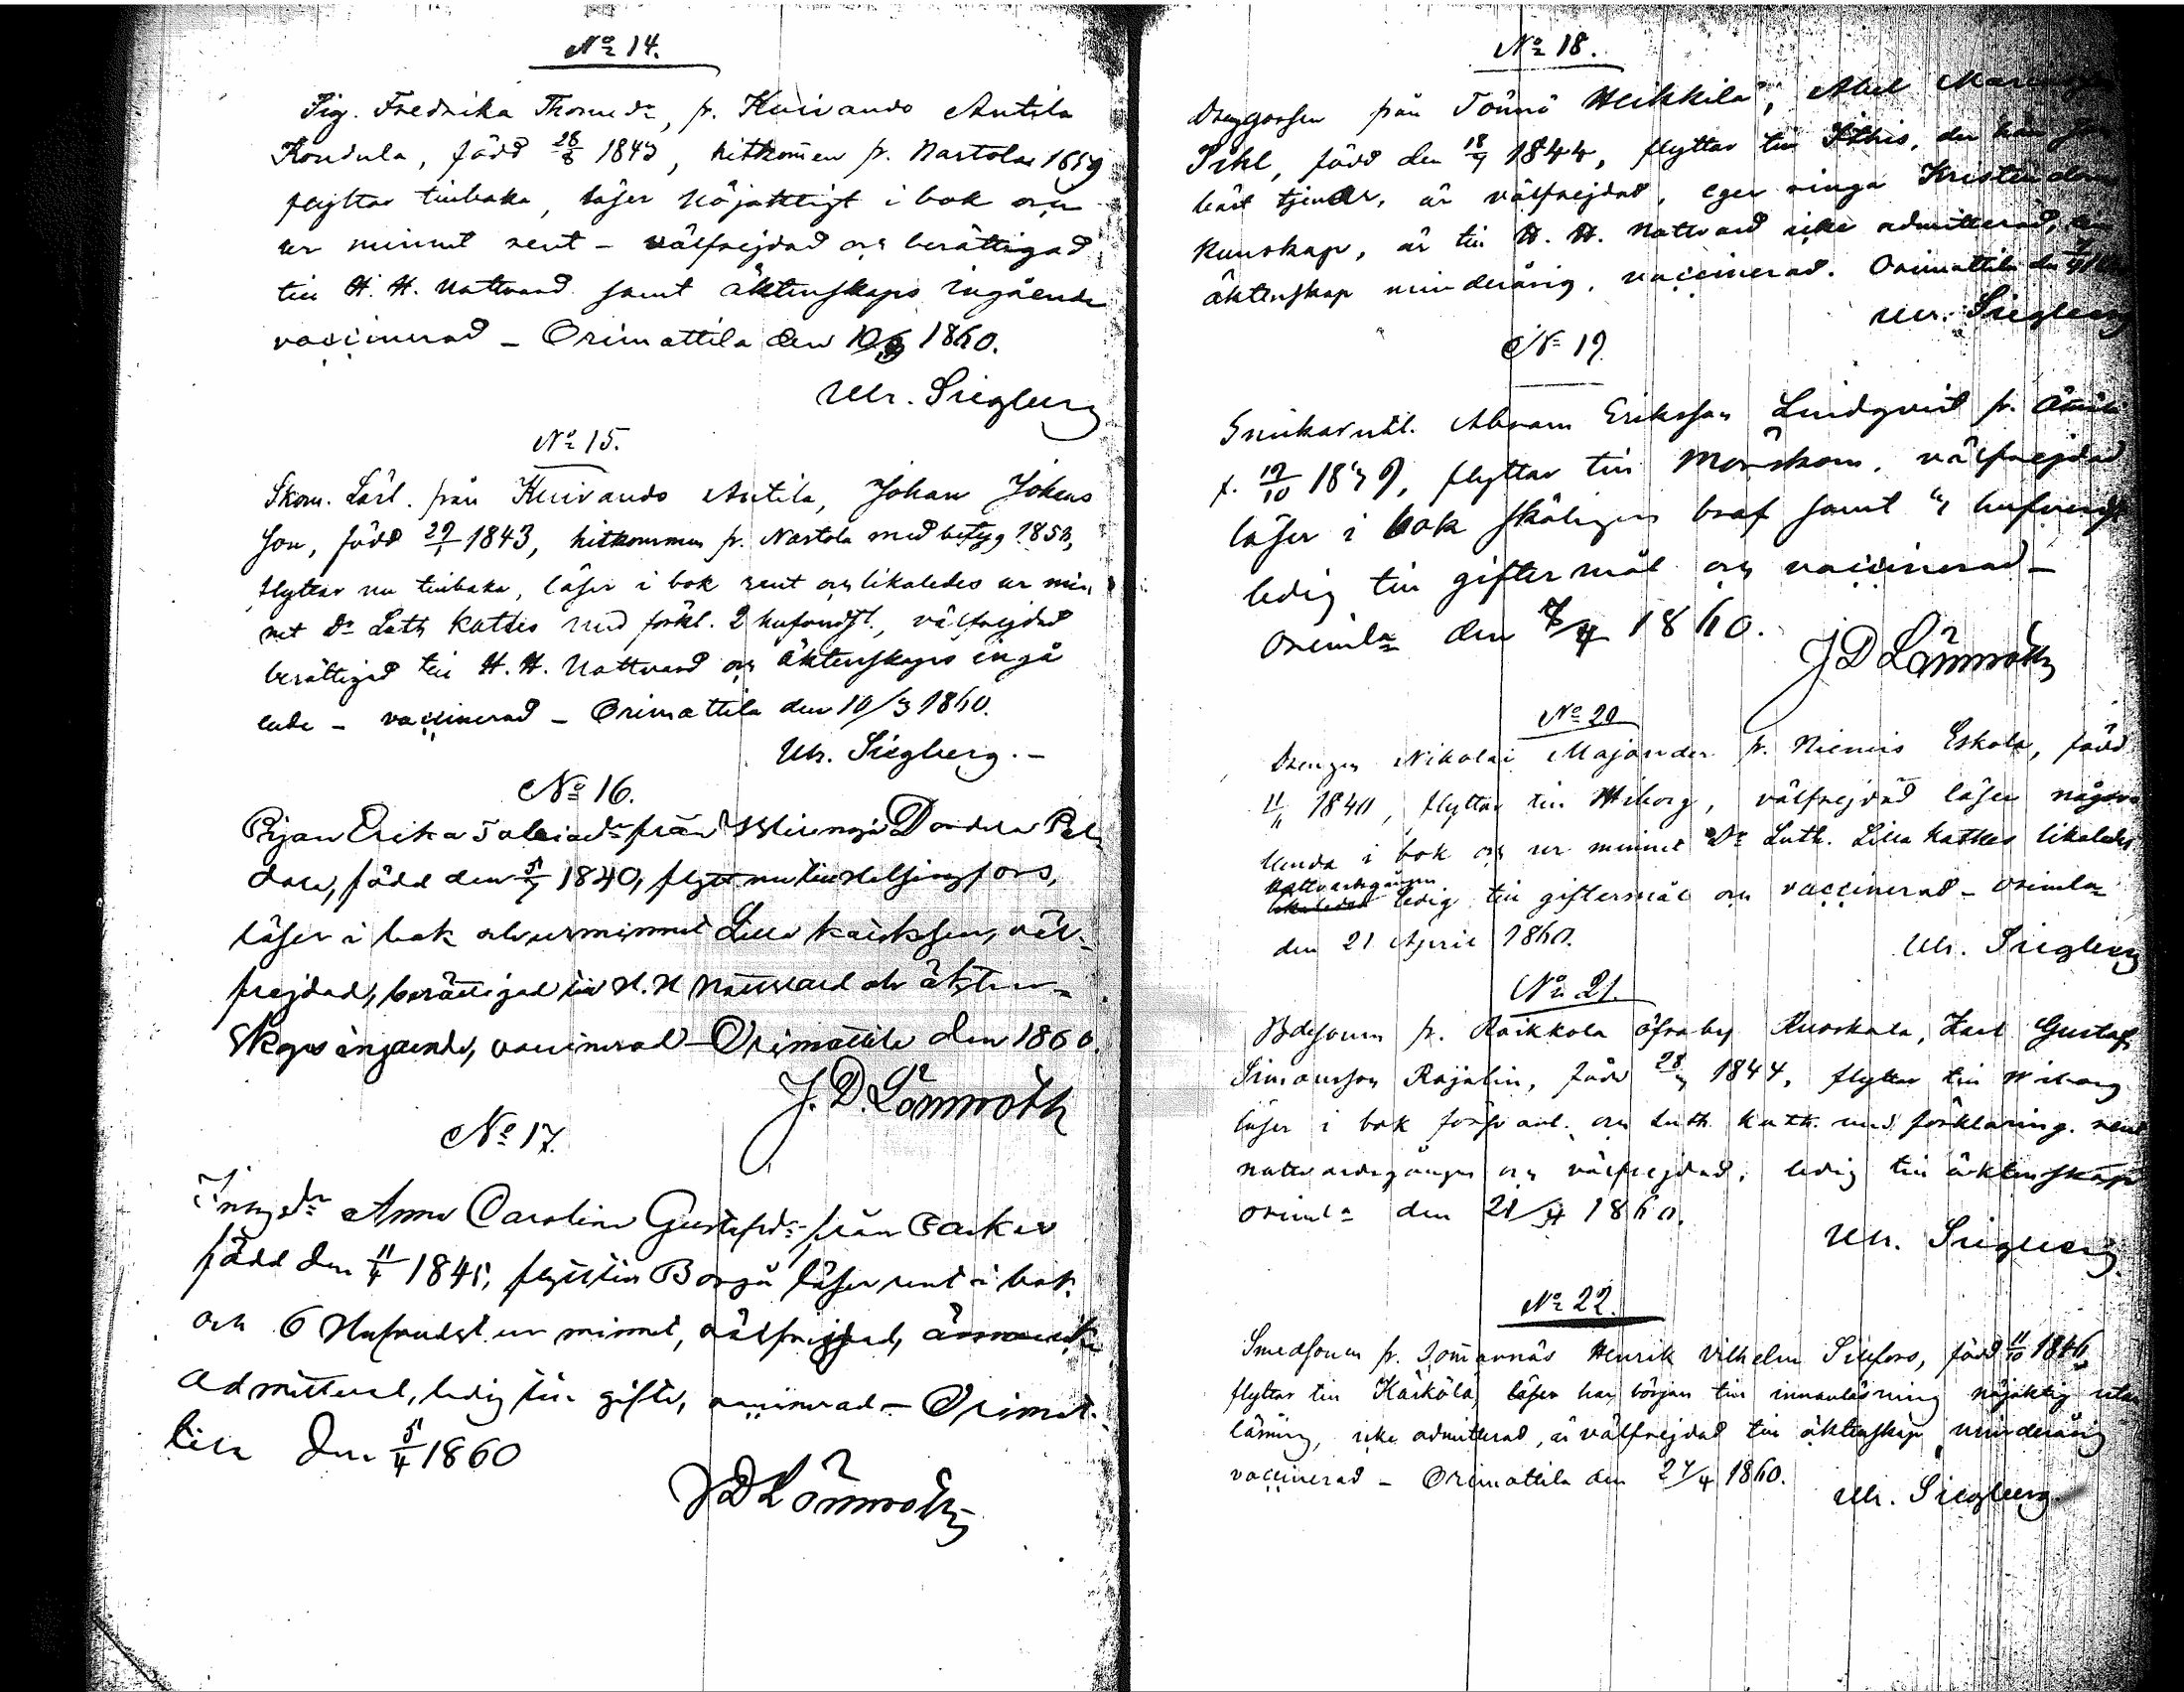 No 14.
Pig. Fredrika Thomedr, fr. Kuivando Antila
Kondula, född 28/8 1843, hitkom̄en fr. Nastola 1859
flyttar tillbaka, läser nöjaktigt i bok och
ur minnet rent – välfrejdad och berättigad
till H. H. Nattvard samt äktenskaps ingående
vaccinerad – Orimattila den 10/3 1860.
Ulr. Siegberg
No 15.
Skom. Lärl. från Kuivando Antila, Johan Johans
son, född 27/1 1843, hitkommen fr. Nastola med betyg 1858,
flyttar nu tillbaka, läser i bok rent och likaledes ur min
net Dr Luth Kattes med förkl. 2 hufvudst., välfrejdad
berättigad till H. H. Nattvard och äktenskaps ingå
ende – vaccinerad – Orimattila den 10/3 1860.
Ulr. Siegberg. –
No 16.
Pigan Erika från
dola, född den 5/7 1840, flytt nu till Helsingfors,
läser i bok och ur minnet Lilla kateksen, väl-
frejdad, berättigad till H. H Nattvard och äkten-
skaps ingående, vaccinerad – Orimattila den 1860.
J. D. Lönnroth
No 17.
Anna Carolina Gustafsdr från
född den 11/4 1845, flytt till Borgå läser rent i bok
och 6 Hufvudst. ur minnet, välfrejdad, ännu icke
admitterad, ledig till gifte, vaccinerad – Orimat-
tila den 5/4 1860
J D Lönnroth
No 18.
Drenggossen från Tönnö Heikkilä, Abel
Pihl, född den 18/9 1844, flyttar till Ithis, der han
tjenar, är välfrejdad, eger ringa Kristendoms
kunskap, är till H. H. Nattvard icke admitterad, till
äktenskap minderårig, vaccinerad. Orimattila den
Ulr. Siegberg
No 19.
Snikarutl. Abram Eriksson Lindqvist fr.
f. 19/10 1839, flyttar till Mörskom, välfrejdad
läser i bok skäligen braf samt hufvudst
ledig till giftermål och vaccinerad –
Orimla den 7/4 1860.
J D Lönnroth
No 20
Drengen Nikolai Majander fr. Niemis Eskola, född
1840, flyttar till Wiborg, välfrejdad läser någor
lunda i bok och ur minnet Dr Luth. Lilla Kattkes likaledes
Nattvardsgången
ledig till giftermål och vaccinerad – Orimla
den 21 April 1860.
Ulr. Siegberg
No 21.
fr. Räikkola öfraby Kuoskala, Karl Gustaf
Simonsson Rajalin, född 28/7 1844, flyttar till Wiborg
läser i bok försvarl. och Luth. kattk. med förklaring. rent
nattvardsgången och välfrejdad, ledig till äktenskap
Orimla den 21/4 1860.
Ulr. Siegberg.
No 22.
Smedsonen fr. Tom̄arnäs Henrik Vilhelm Silfors, född 11/10 1846
flyttar till Kärkölä, läser har början till innanläsning nöjaktig utan
läsning, icke admitterad, är välfrejdad till äktenskap minderårig
vaccinerad – Orimattila den 27/4 1860.
Ulr. Siegberg.